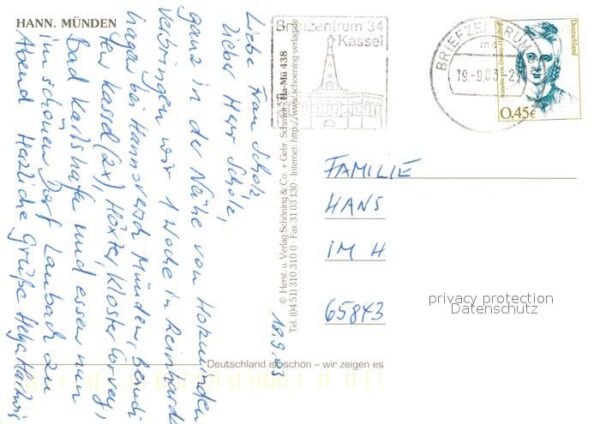 HANN. MÜNDEN
Liebe Frau Scholz,
lieber Herr Scholz,
ganz in der Nähe von Holzminden
verbringen wir 1 Woche in Reinhards
hagen bei Hannoversch Münden, besuch
ten Kassel (2x), Höxter, Kloster Corvey,
Bad Karlshafen und essen nun
im schönen Dorf Laubach zu
Abend Herzliche Grüße Helga
18.9.03
© Herst. u. Verlag Schöning & Co. + Gebr. Schmidt Ha-Mü 438
Tel. (04 51) 310 310 0 Fax 31 03 130 - Internet: http://www.schoening-verlag.de
Briefzentrum 34
Kassel
BRIEFZENTRUM
19.-9.03.-2
Deutschland
Annette von Droste-Hülshoff
0,45€
FAMILIE
HANS
IM H
65843
privacy protection
Datenschutz
Deutschland ist schön – wir zeigen es